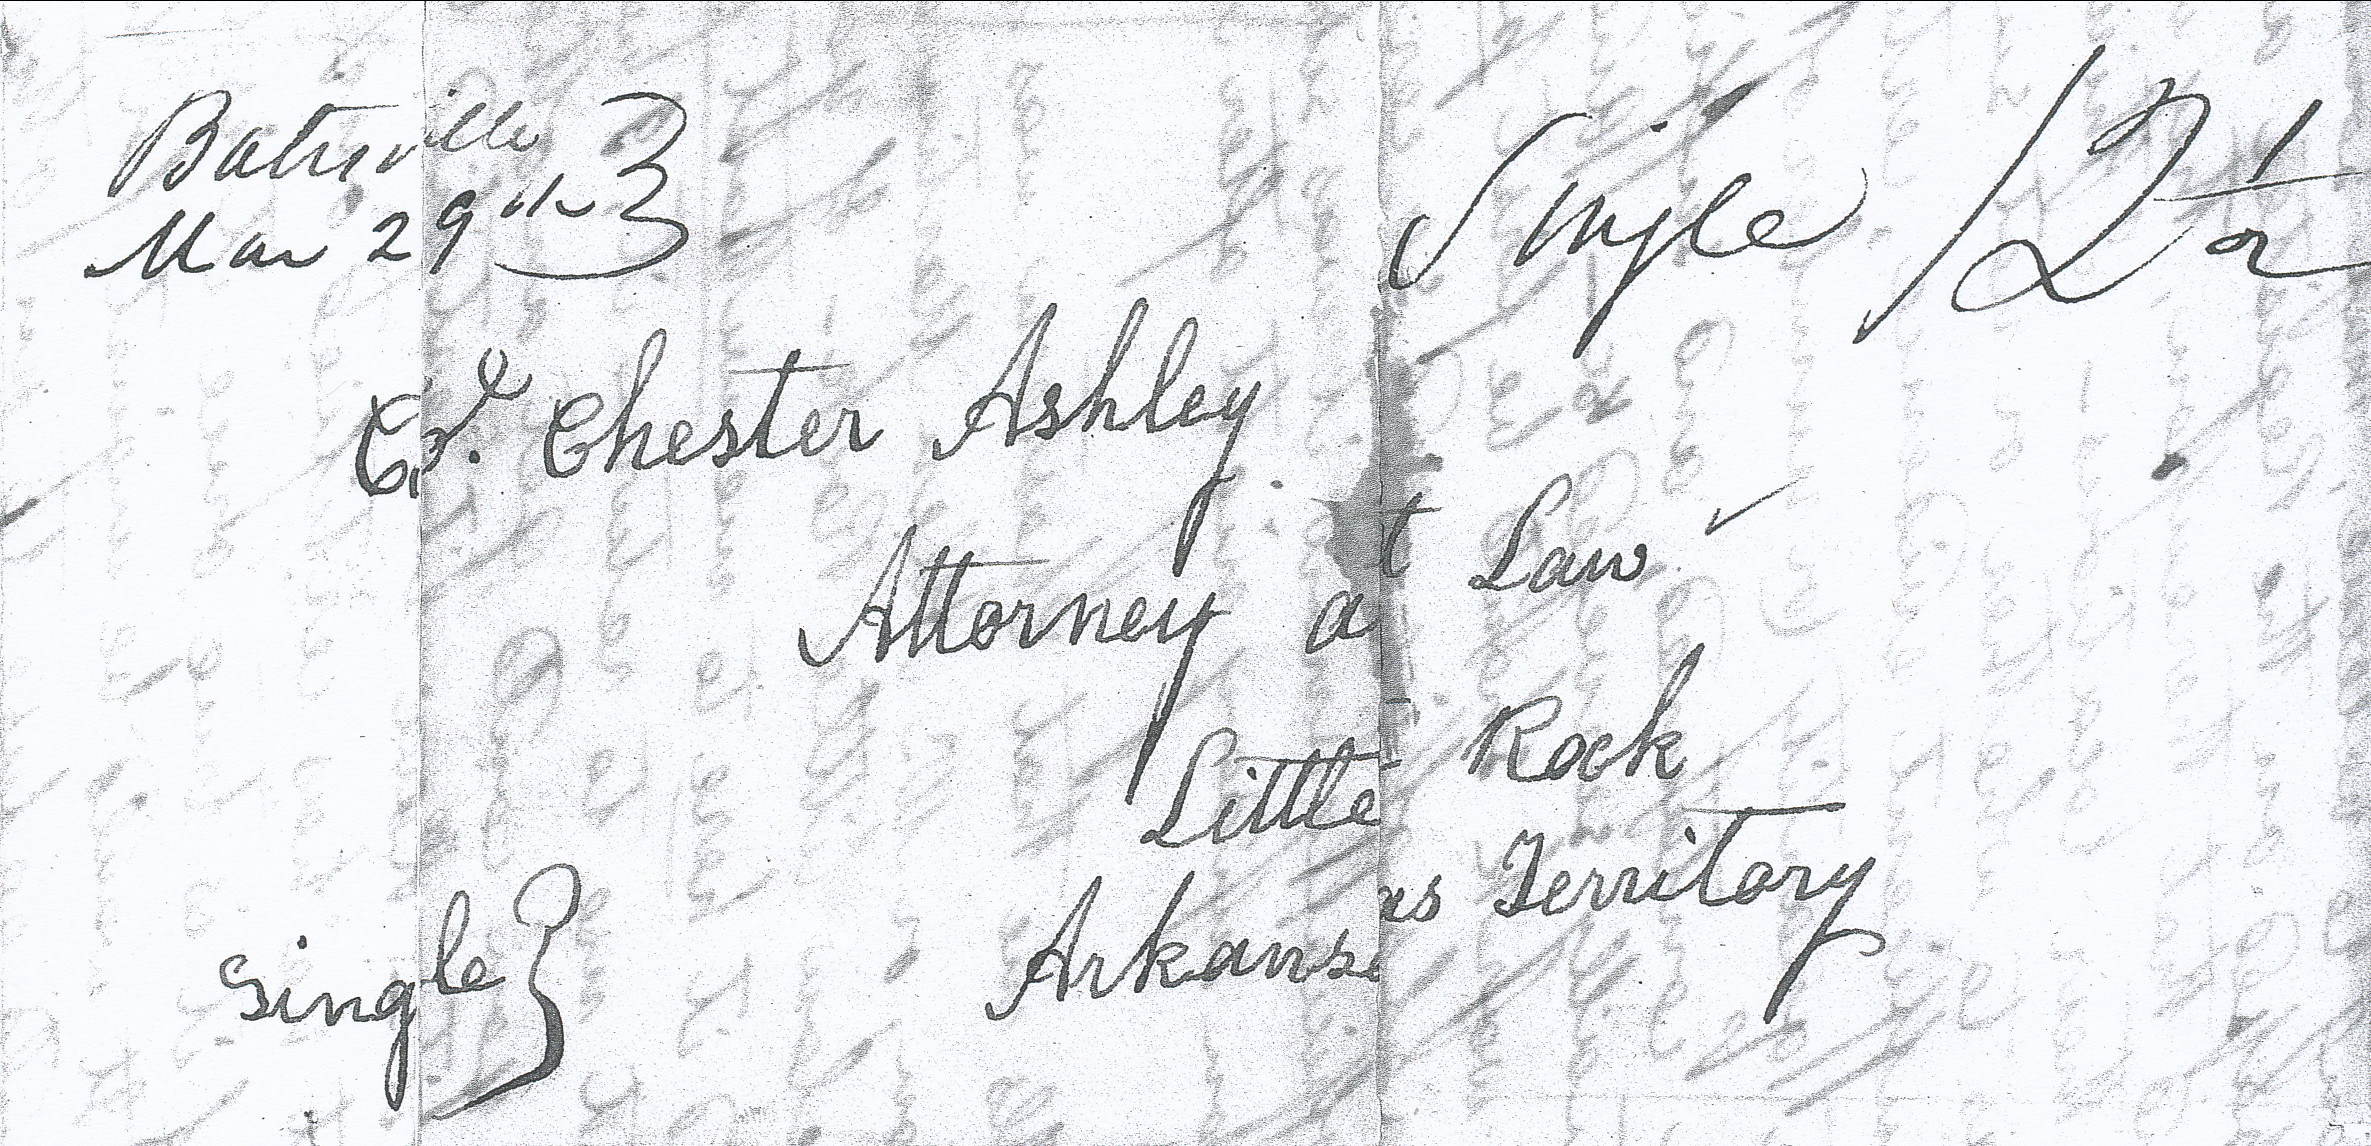 Batesville
Mar 29th
Single / 12 1/2
Chester Ashley
Attorney at Law
Little Rock
Arkansas Territory
Single